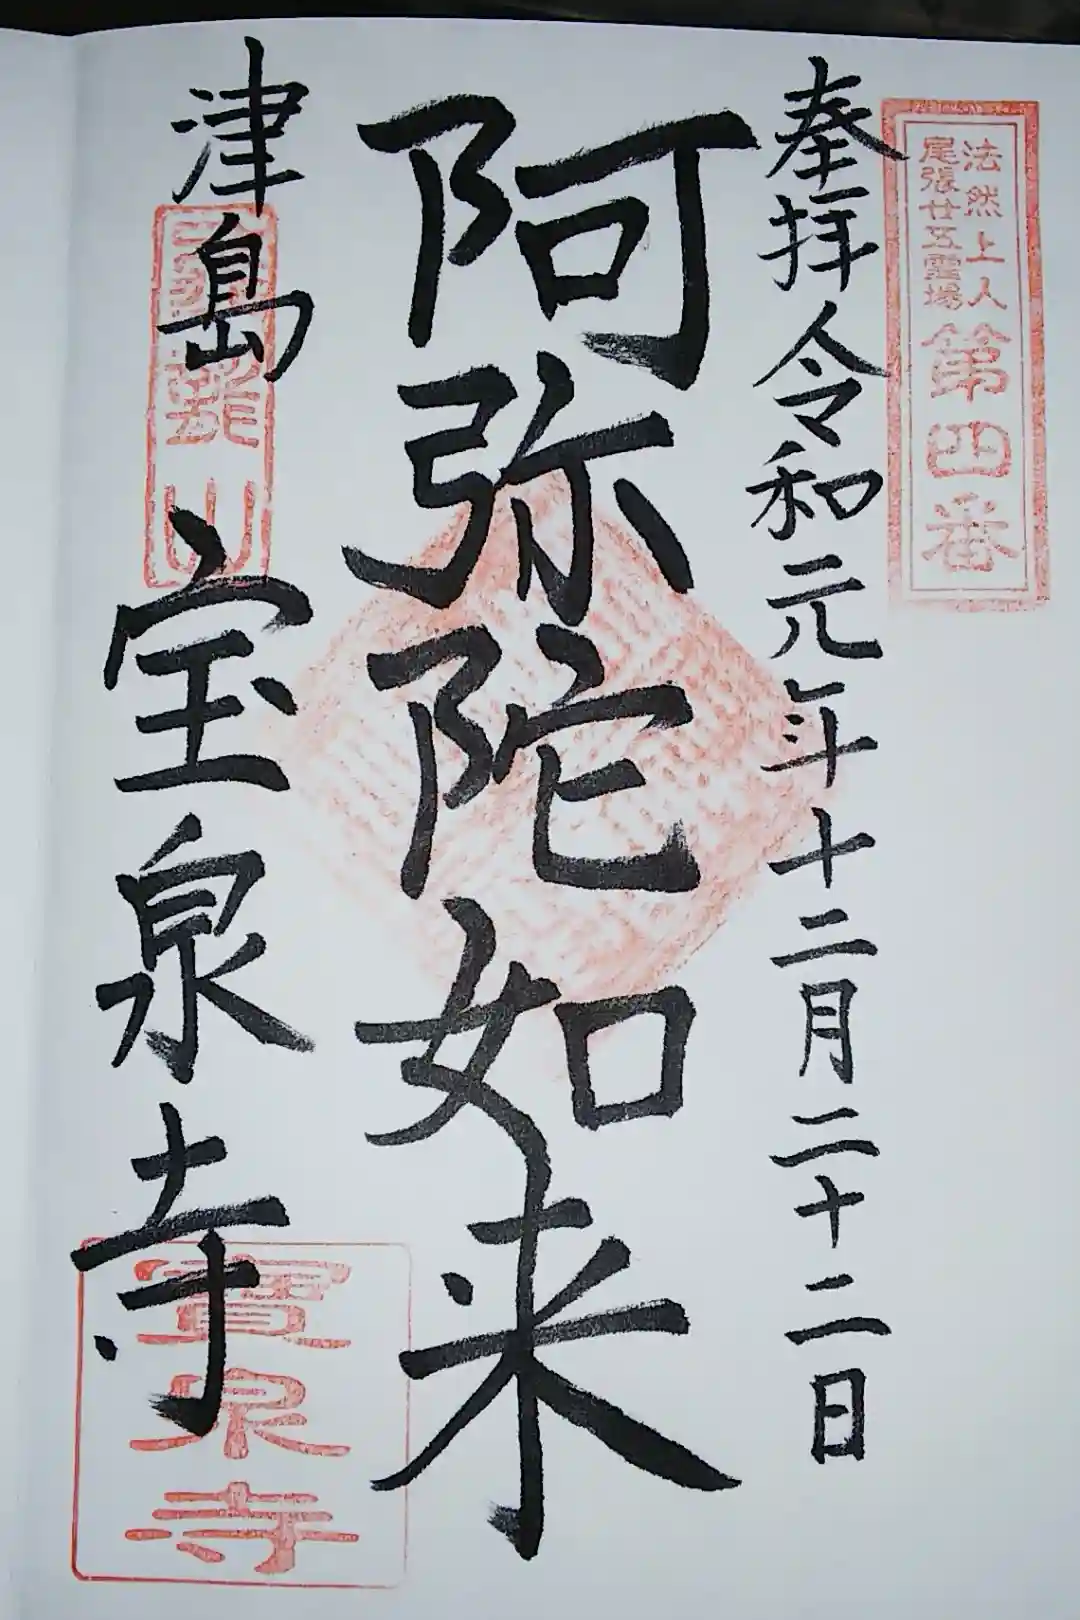 法然上人
尾張廿五霊場
第四番
奉拝 令和元年十二月二十二日
阿弥陀如来
津島 宝泉寺
寶泉寺